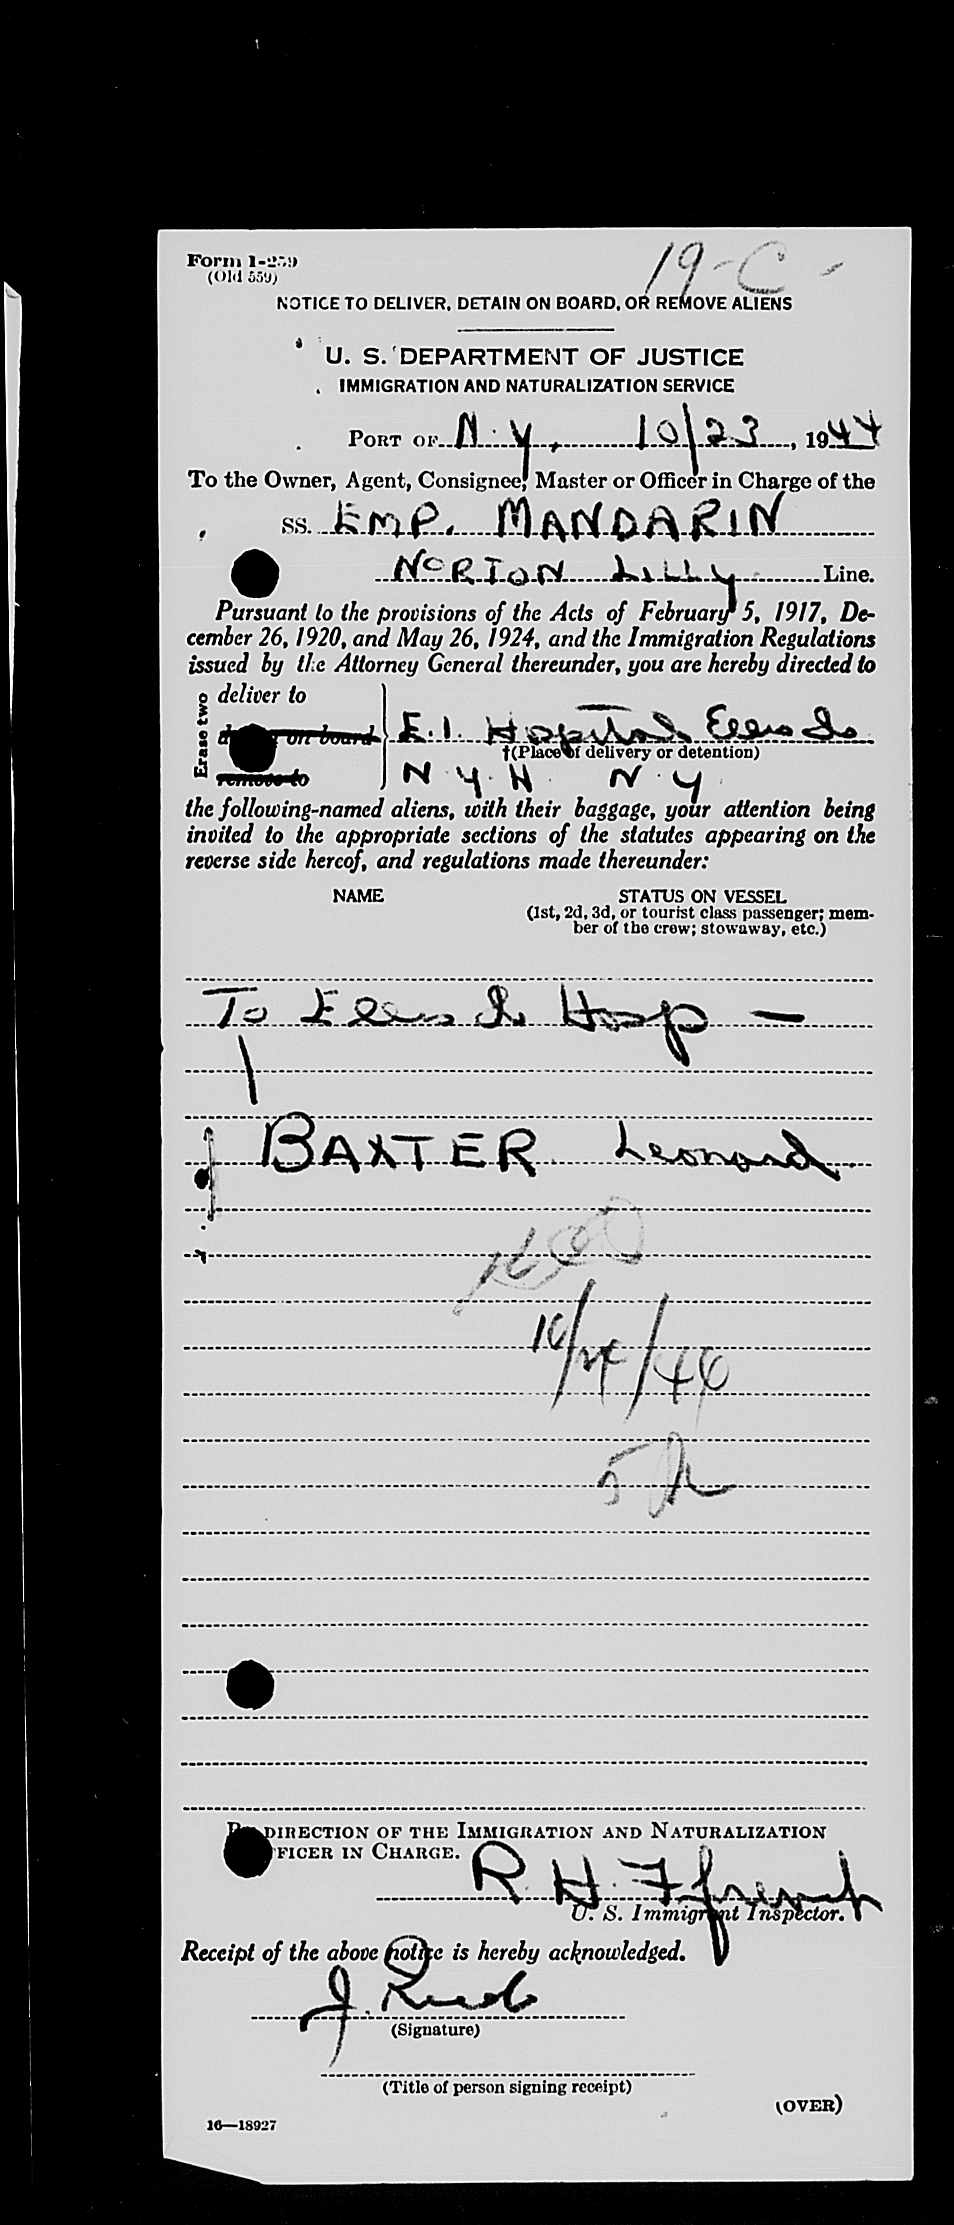 Form I-259
(Old 559)
19-C
NOTICE TO DELIVER, DETAIN ON BOARD, OR REMOVE ALIENS
U. S. DEPARTMENT OF JUSTICE
IMMIGRATION AND NATURALIZATION SERVICE
PORT OF N.Y., 10/23, 1944
To the Owner, Agent, Consignee, Master or Officer in Charge of the
SS. EMP. MANDARIN
NORTON LILLY Line.
Pursuant to the provisions of the Acts of February 5, 1917, De-
cember 26, 1920, and May 26, 1924, and the Immigration Regulations
issued by the Attorney General thereunder, you are hereby directed to
Erase two
deliver to
on board
remove to
E.I. Hospital Ellis Is
†(Place of delivery or detention)
N.Y.H. N.Y
the following-named aliens, with their baggage, your attention being
invited to the appropriate sections of the statutes appearing on the
reverse side hereof, and regulations made thereunder:
NAME STATUS ON VESSEL
(1st, 2d, 3d, or tourist class passenger; mem-
ber of the crew; stowaway, etc.)
To Ellis Is Hosp —
BAXTER Leonard
10/24/44
DIRECTION OF THE IMMIGRATION AND NATURALIZATION
FICER IN CHARGE.
R. H.
U. S. Immigrant Inspector.
Receipt of the above notice is hereby acknowledged.
J.
(Signature)
(Title of person signing receipt)
(OVER)
16—18927